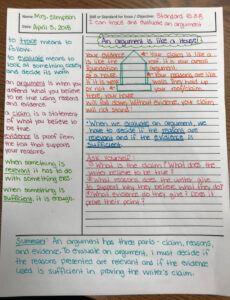 Name: Mrs. Simpson
Date: April 3, 2018
Skill or Standard for Focus / Objective: Standard RI.8.8
I can trace and evaluate an argument
to trace means to
follow.
to evaluate means to
look at something closely
and decide its worth
an argument is when you
defend what you believe
to be true using reasons
and evidence.
a claim is a statement
of what you believe to
be true.
evidence is proof from
the text that supports
your reasons.
when something is
relevant it has to do
with something else.
when something is
sufficient, it is enough.
An argument is like a house!
Your evidence
is the
foundation
of a house.
If it's weak,
then your
house
Your claim is like a
roof. It is your overall
argument.
Your reasons are like
walls. They hold up
your roof.
will fall down. Without evidence, your claim
will not stand!
*When we evaluate an argument, we
have to decide if the reasons are
relevant and if the evidence is
sufficient.
Ask Yourself:
? What is the claim? What does the
writer believe to be true?
? What reasons does the writer give
to support why they believe what they do?
? What evidence do they give? Does it
prove their point?
Summary: An argument has three parts - claim, reasons,
and evidence. To evaluate an argument, I must decide if
the reasons presented are relevant and if the evidence
used is sufficient in proving the writer's claim.